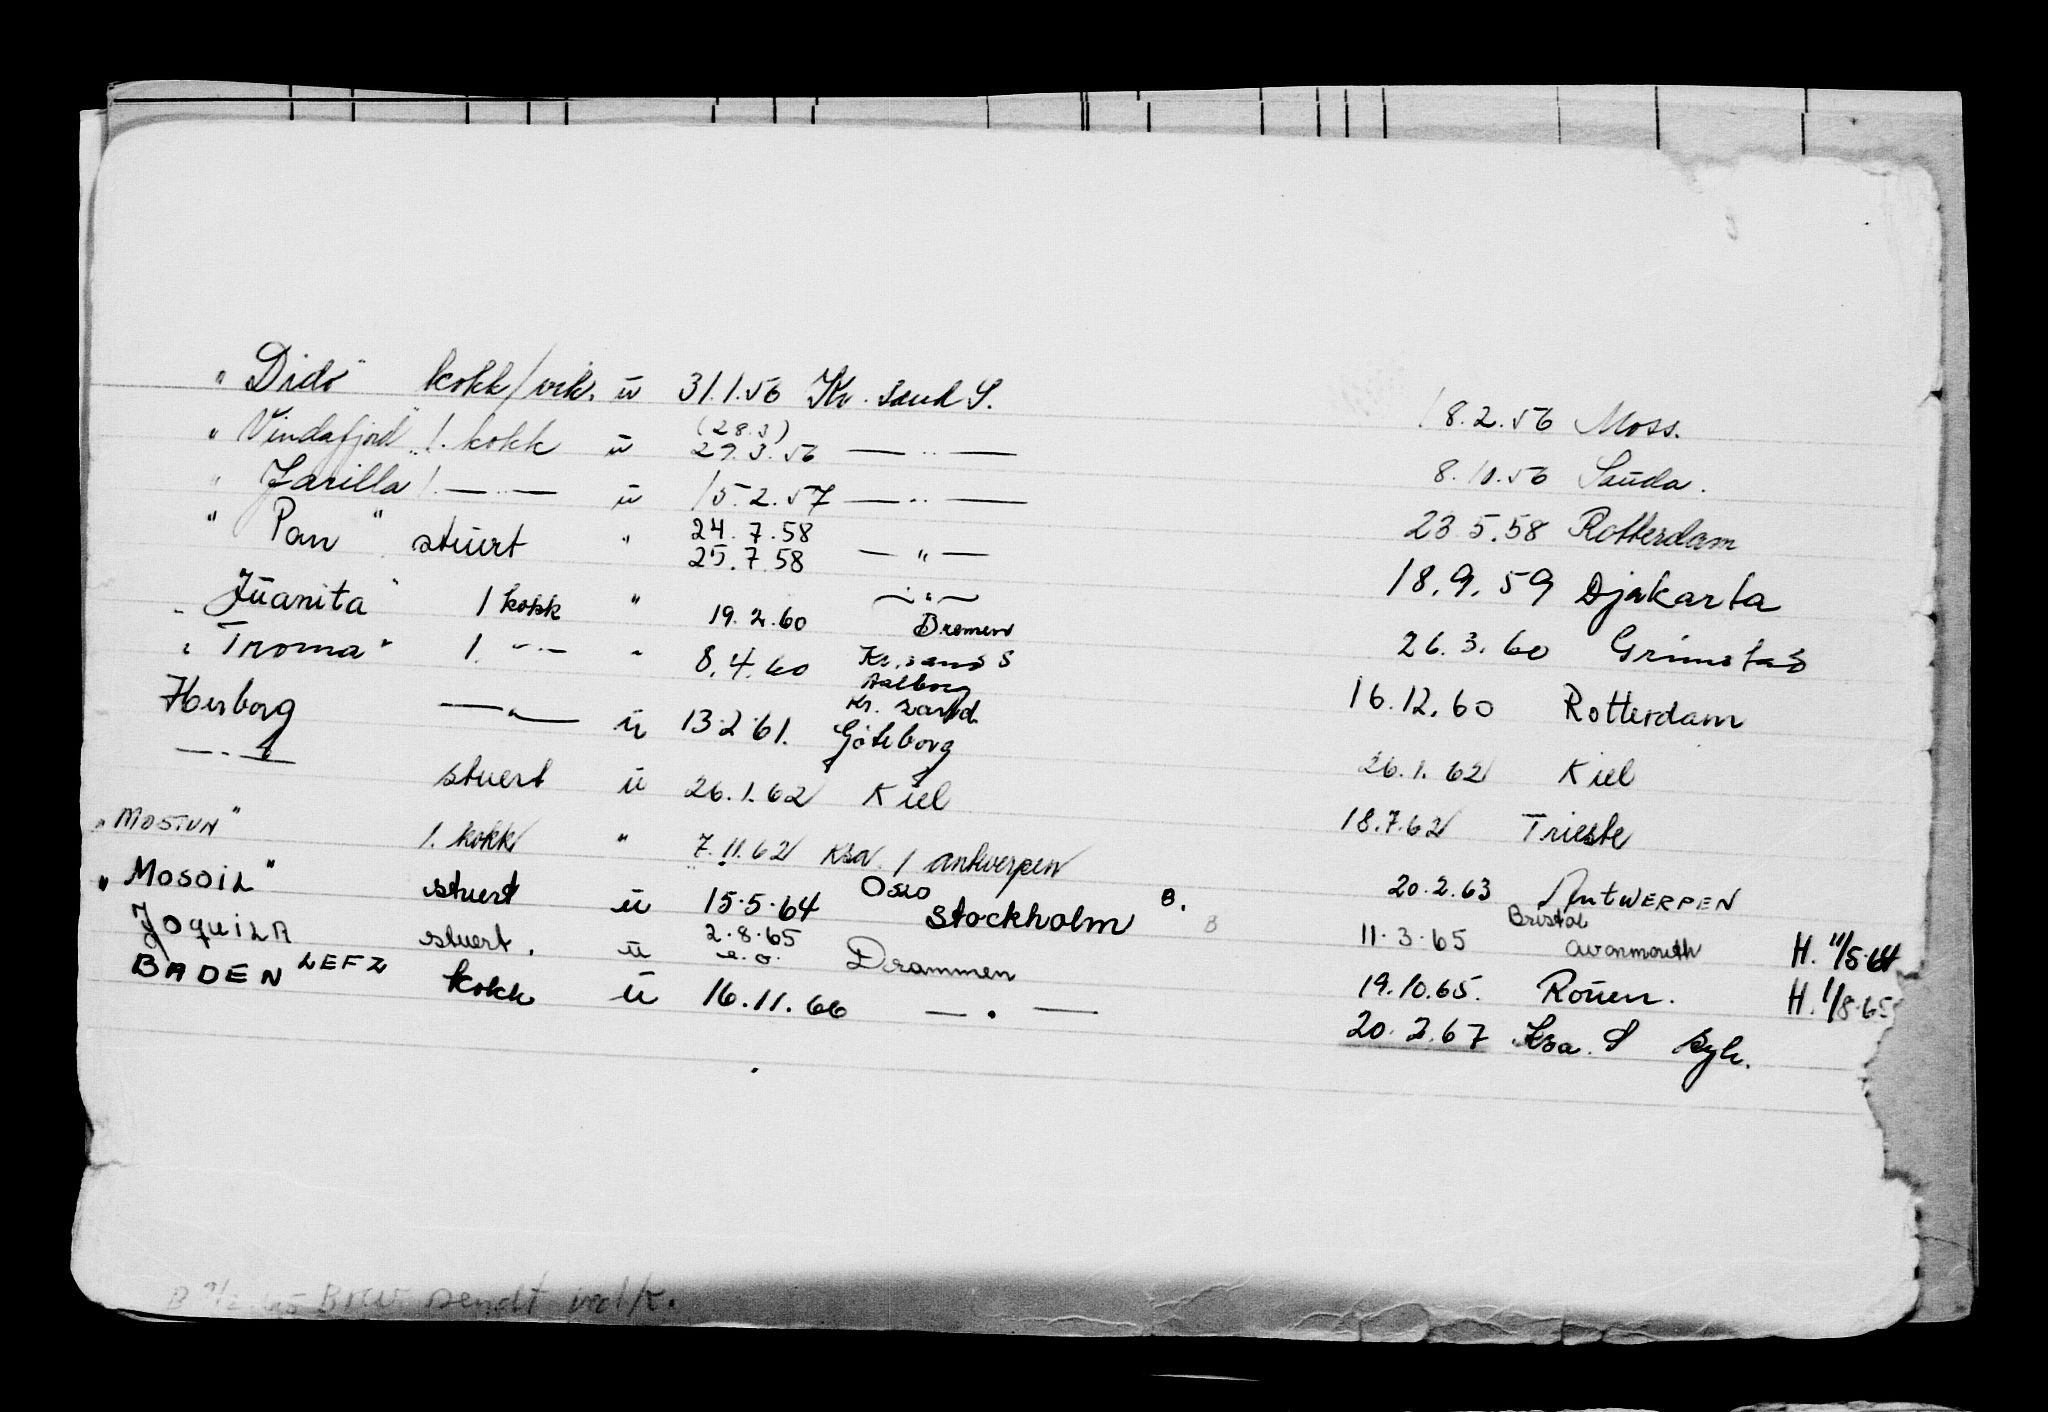 " Dido" kokk/vik. u 31.1.56 Kr. sand S. 18.2.56 Moss.
" Vindafjord" 1. kokk u (28.3) 29.3.56 — " — 8.10.56 Sauda.
" Jarilla 1. — " — u 15.2.57 — " — 23.5.58 Rotterdam
" Pan " stuert " 24.7.58 25.7.58 — " — 18.9.59 Djakarta
" Juanita" 1 kokk " 19.2.60 — " — Bremen 26.3.60 Grimstad
" Troma" 1. — " — " 8.4.60 Kr. sand S Aalborg 16.12.60 Rotterdam
Herborg — " — u 13.2.61. Kr. sand. Göteborg 26.1.62 Kiel
— " — stuert u 26.1.62 Kiel 18.7.62 Trieste
" MOSTUN" 1. kokk " 7.11.62 Ksa. / antwerpen 20.2.63 ANTWERPEN
" MOSOIL" stuert u 15.5.64 Oslo stockholm B. B 11.3.65 Bristol avonmouth H. 11/5-64
JOQUILA stuert. u 2.8.65 e.o. Drammen 19.10.65. Rouen. H. 1/8-65
BADEN LEFZ kokk u 16.11.66 — " — 20.2.67 Ksa. S syk.
B 9/2-65 Brev sendt ved/k.